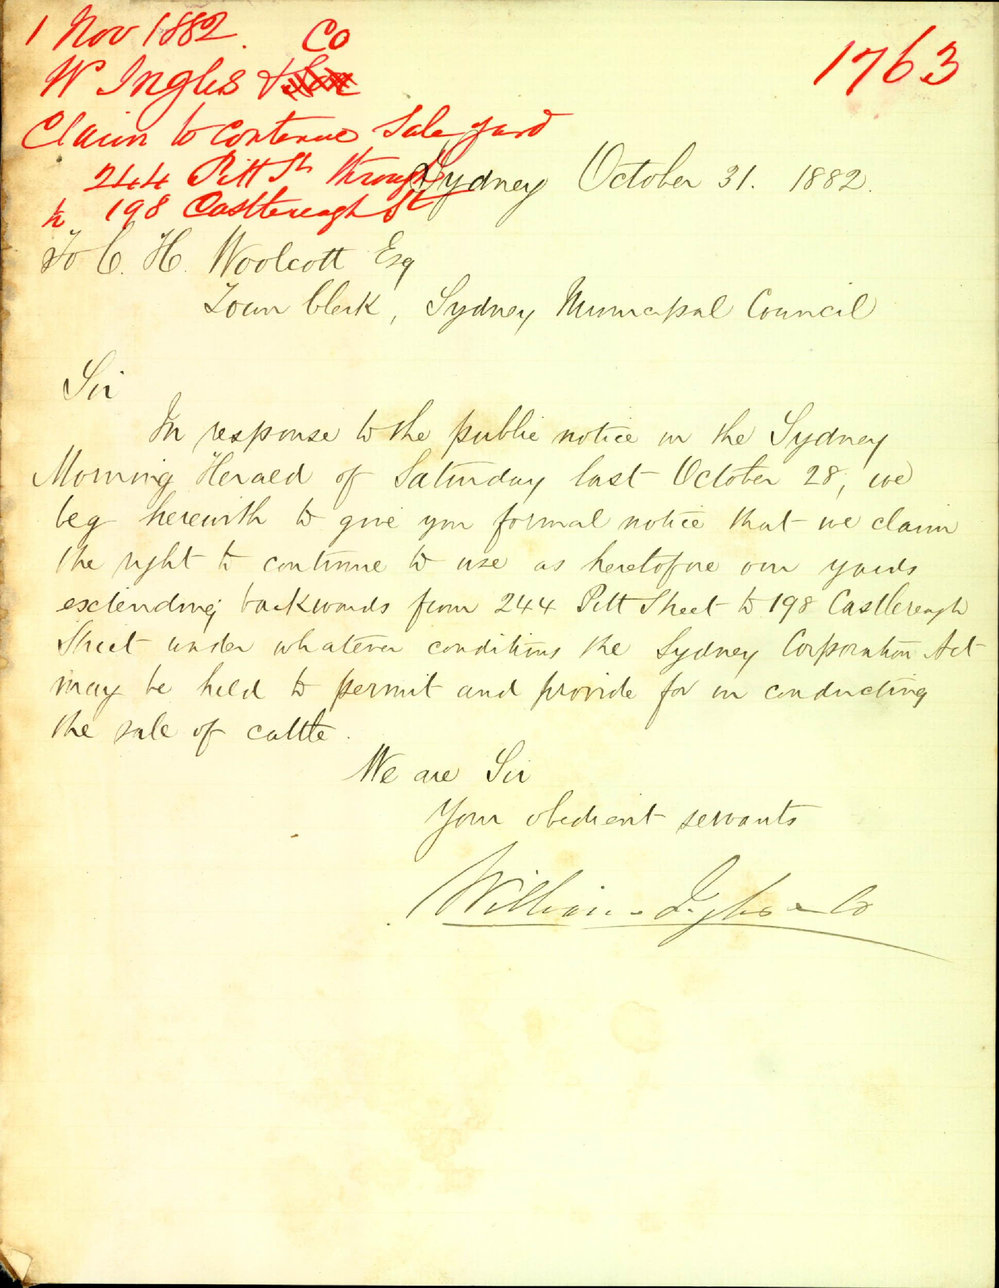 1 Nov 1882. Co
W Inglis &
1763
Claim to continue Sale yard
244 Pitt St through
to 198 Castlereagh St
Sydney October 31. 1882.
To C. H. Woolcott Esq
Town Clerk, Sydney Municipal Council
Sir
In response to the public notice in the Sydney
Morning Herald of Saturday last October 28, we
beg herewith to give you formal notice that we claim
the right to continue to use as heretofore our yards
extending backwards from 244 Pitt Street to 198 Castlereagh
Street under whatever conditions the Sydney Corporation Act
may be held to permit and provide for in conducting
the sale of cattle.
We are Sir
Your obedient servants
William Inglis & Co